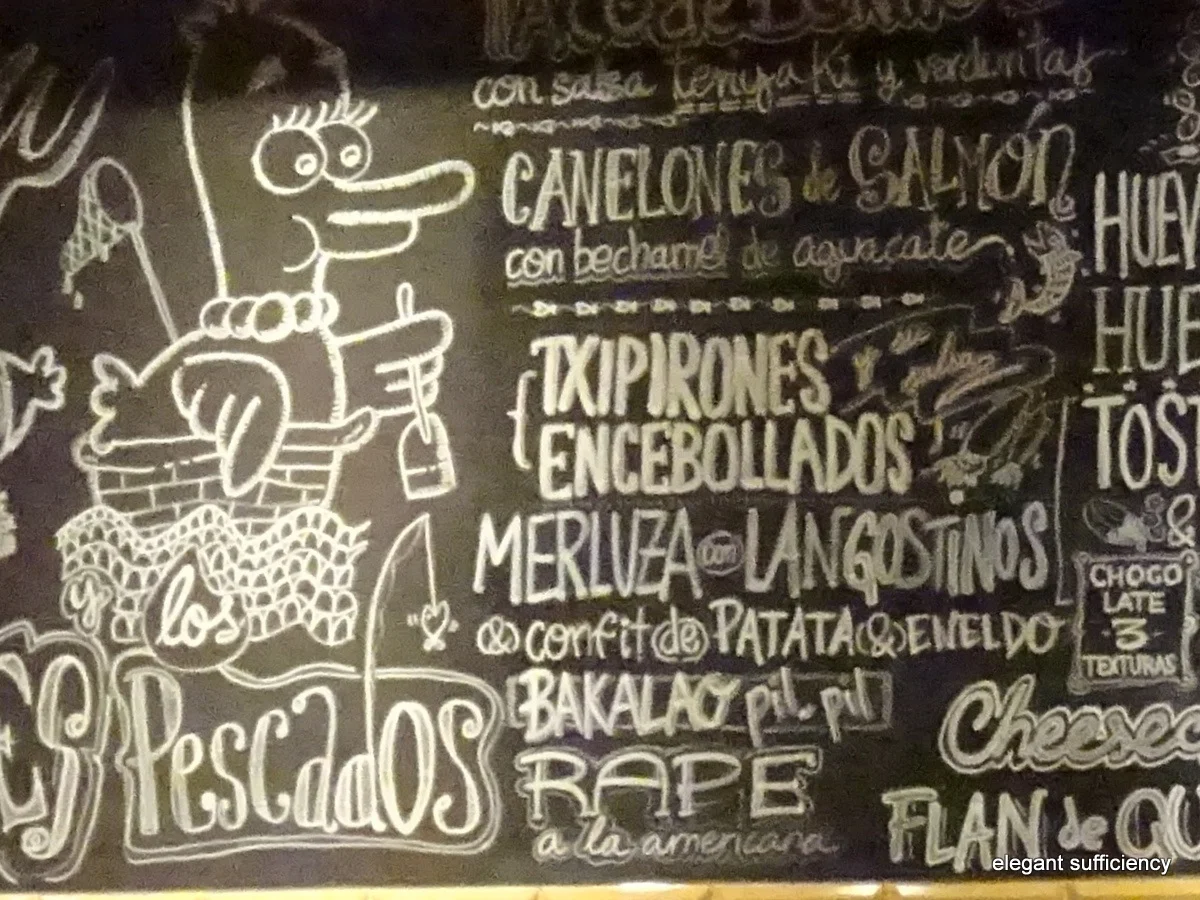 y
los
Pescados
con salsa teriyaki y verduritas
CANELONES de SALMÓN
con bechamel de aguacate
TXIPIRONES
ENCEBOLLADOS
MERLUZA con LANGOSTINOS
& confit de PATATA & ENELDO
BAKALAO pil. pil
RAPE
a la americana
HUEV
HUE
TOST
&
CHOCO
LATE
3
TEXTURAS
Cheesec
FLAN de QU
elegant sufficiency